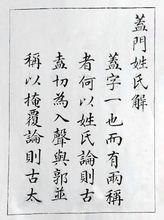 蓋門姓氏解
蓋字一也而有兩稱
者何以姓氏論則古
盍切為入聲與郭並
稱以掩覆論則古太